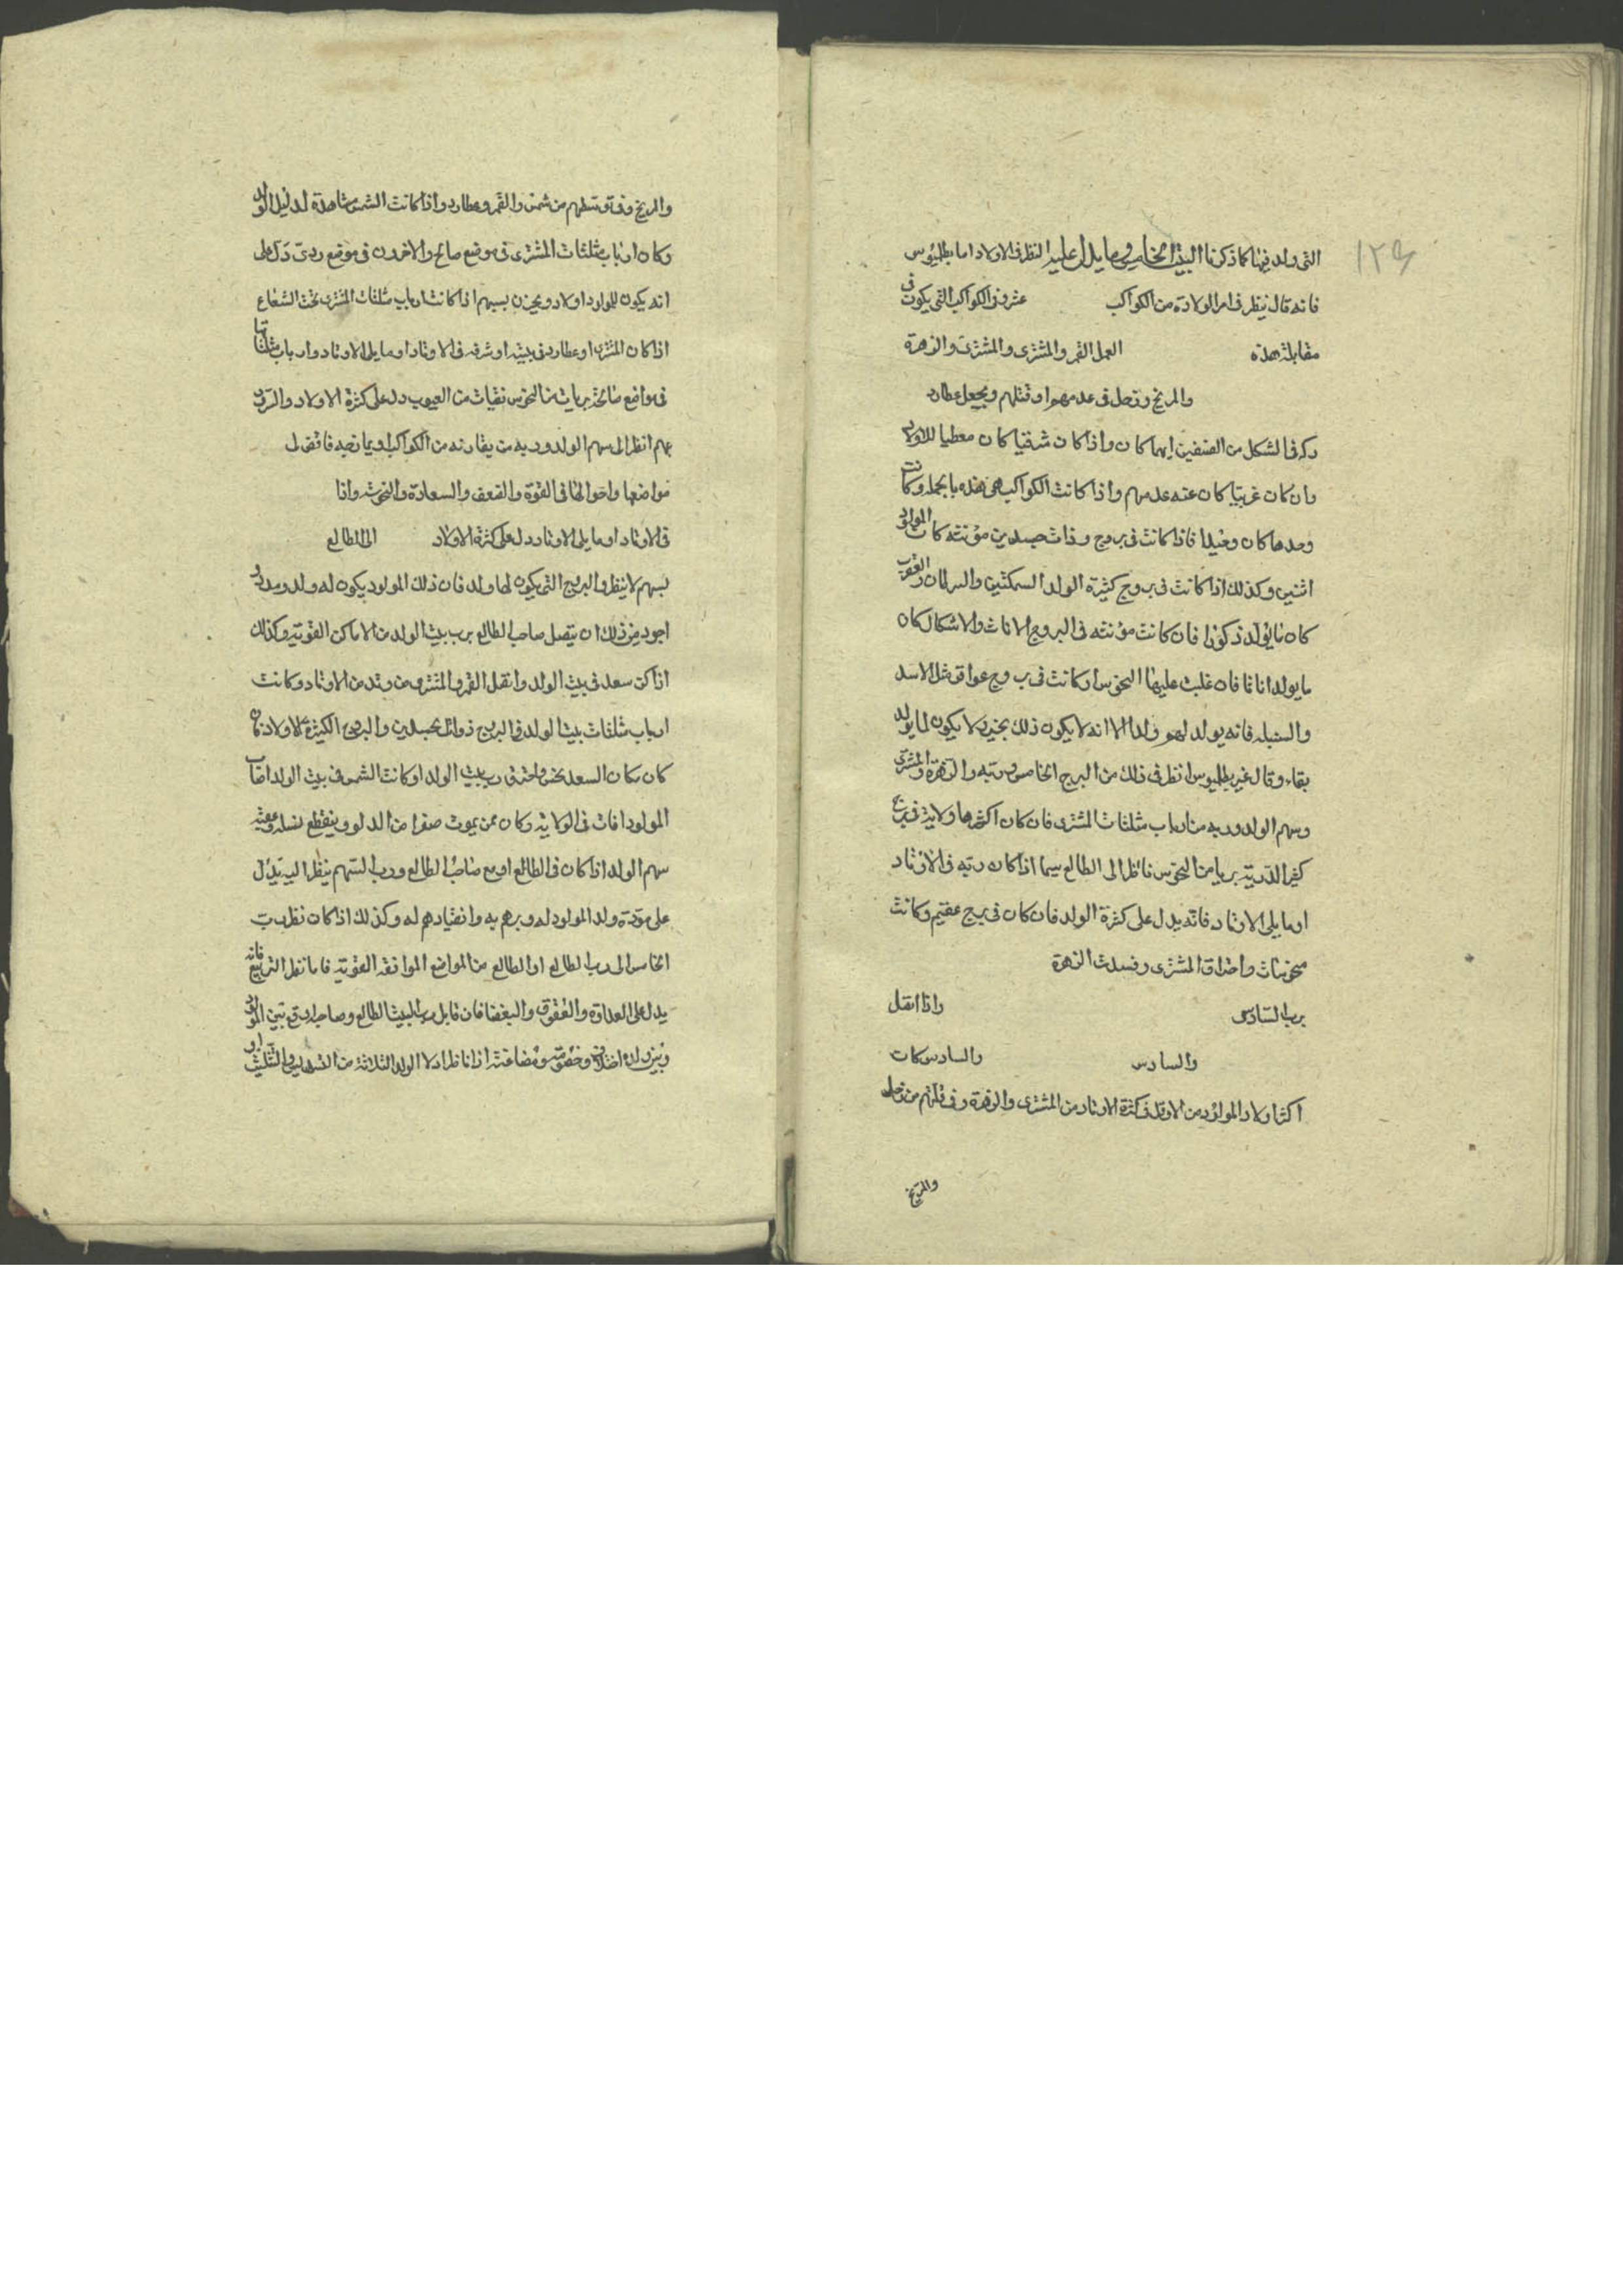 ١٢٤
التى ولد فيها كما ذكرنا البيت الخامس وما يدل عليه النظر فى الاولاد اما بطلميوس
فانه قال ينظر فى امر الولادة من الكواكب عشر وفى الكواكب التى يكون فى
مقابلة هذه العمل القمر والمشترى والمشترى والزهرة
والمريخ وزحل فى عدمهم او قتلهم ويجعل عطارد
فى الشكل من الصنفين ايهما كان واذا كان شرقيا كان معطيا للاولاد
وان كان غربيا كان عنه عدمهم واذا كانت الكواكب هى هذه بالجملة وكانت
وحدها كان وحيدا فاذا كانت فى بروج وذات جسدين مؤنثه كان المولود
اثنين وكذلك اذا كانت فى بروج كثيرة الولد السمكتين والسرطان والعقرب
كان ما يولد ذكورا فان كانت مؤنثه فى البروج الاناث والاشكال كان
ما يولد اناثا فان غلبت عليهما النحوس او كانت فى بروج عواقر مثل الاسد
والسنبله فانه يولد لهو ولد الا انه لا يكون ذلك بخير ولا يكون لما يولد
بقاء وقال غير بطلميوس انظر فى ذلك من البرج الخامس وربه والزهرة والمشترى
وسهم الولد وربه من ارباب مثلثات المشترى فان كان اكثرها ولاية فى برج
كثير الذرية بريا من النحوس فانظر الى الطالع سيما اذا كان ربه فى الاوتاد
او ما يلى الاوتاد فانه يدل على كثرة الولد فان كان فى برج عقيم وكانت
واحتراق المشترى وفسدت الزهرة
برب السادس واذا انقل
والسادس والسادس كانت
اكثر اولاد المولود من الاول فى كثرة الاوتاد من المشترى والزهرة وفى قلتهم من زحل
والمريخ
والمريخ وفى توسطهم من شمس والقمر وعطارد واذا كانت الشمس شاهدة لدليل الولد
وكان ارباب مثلثات المشترى فى موضع صالح والاخرون فى موضع ردى دل على
انه يكون للمولود اولاد ويحزن بسببهم اذا كانت ارباب مثلثات المشترى تحت الشعاع
اذا كان المشترى او عطارد فى بيته او شرفه فى الاوتاد او ما يلى الاوتاد وارباب مثلثاتها
فى مواضع صالحة بريات من النحوس نقيات من العيوب دل على كثرة الاولاد والسرور
بهم انظر الى سهم الولد وربه من يقارنه من الكواكب
مواضعها واحوالها فى القوة والضعف والسعادة والنحوس واذا
فى الاوتاد او ما يلى الاوتاد دل على كثرة الاولاد الى الطالع
بسهم لا ينظر والبروج التى يكون لها ولد فان ذلك المولود يكون له ولد
اجود من ذلك ان يتصل صاحب الطالع برب بيت الولد من الاماكن القوية وكذلك
اذا كن سعد فى بيت الولد واتصل القمر والمشترى من وتد من الاوتاد وكانت
ارباب مثلثات بيت الولد فى البروج ذوات الجسدين والبروج الكثيرة الاولاد فان
كان مكان السعد نحس واحترق رب بيت الولد او كانت الشمس فى بيت الولد اصاب
المولود افات فى الولاية وكان ممن يموت صفرا من الولد وينقطع نسله وعقبه
سهم الولد اذا كان فى الطالع او مع صاحب الطالع ورب السهم ينظر اليه يدل
على مودة ولد المولود له وبرهم به وانقيادهم له وكذلك اذا كان نظر رب
الخامس الى رب الطالع او الطالع من المواضع الموافقة القوية فاما نظر التربيع فانه
يدل على العداوة والعقوق والبغضا فان قابل رب البيت الطالع وصاحبه وقع بين المولود
وبين ولده اختلاف وخصومة ومضاغنة اذا ناظر اولا الولد الثلاثة من التسديس والتثليث او